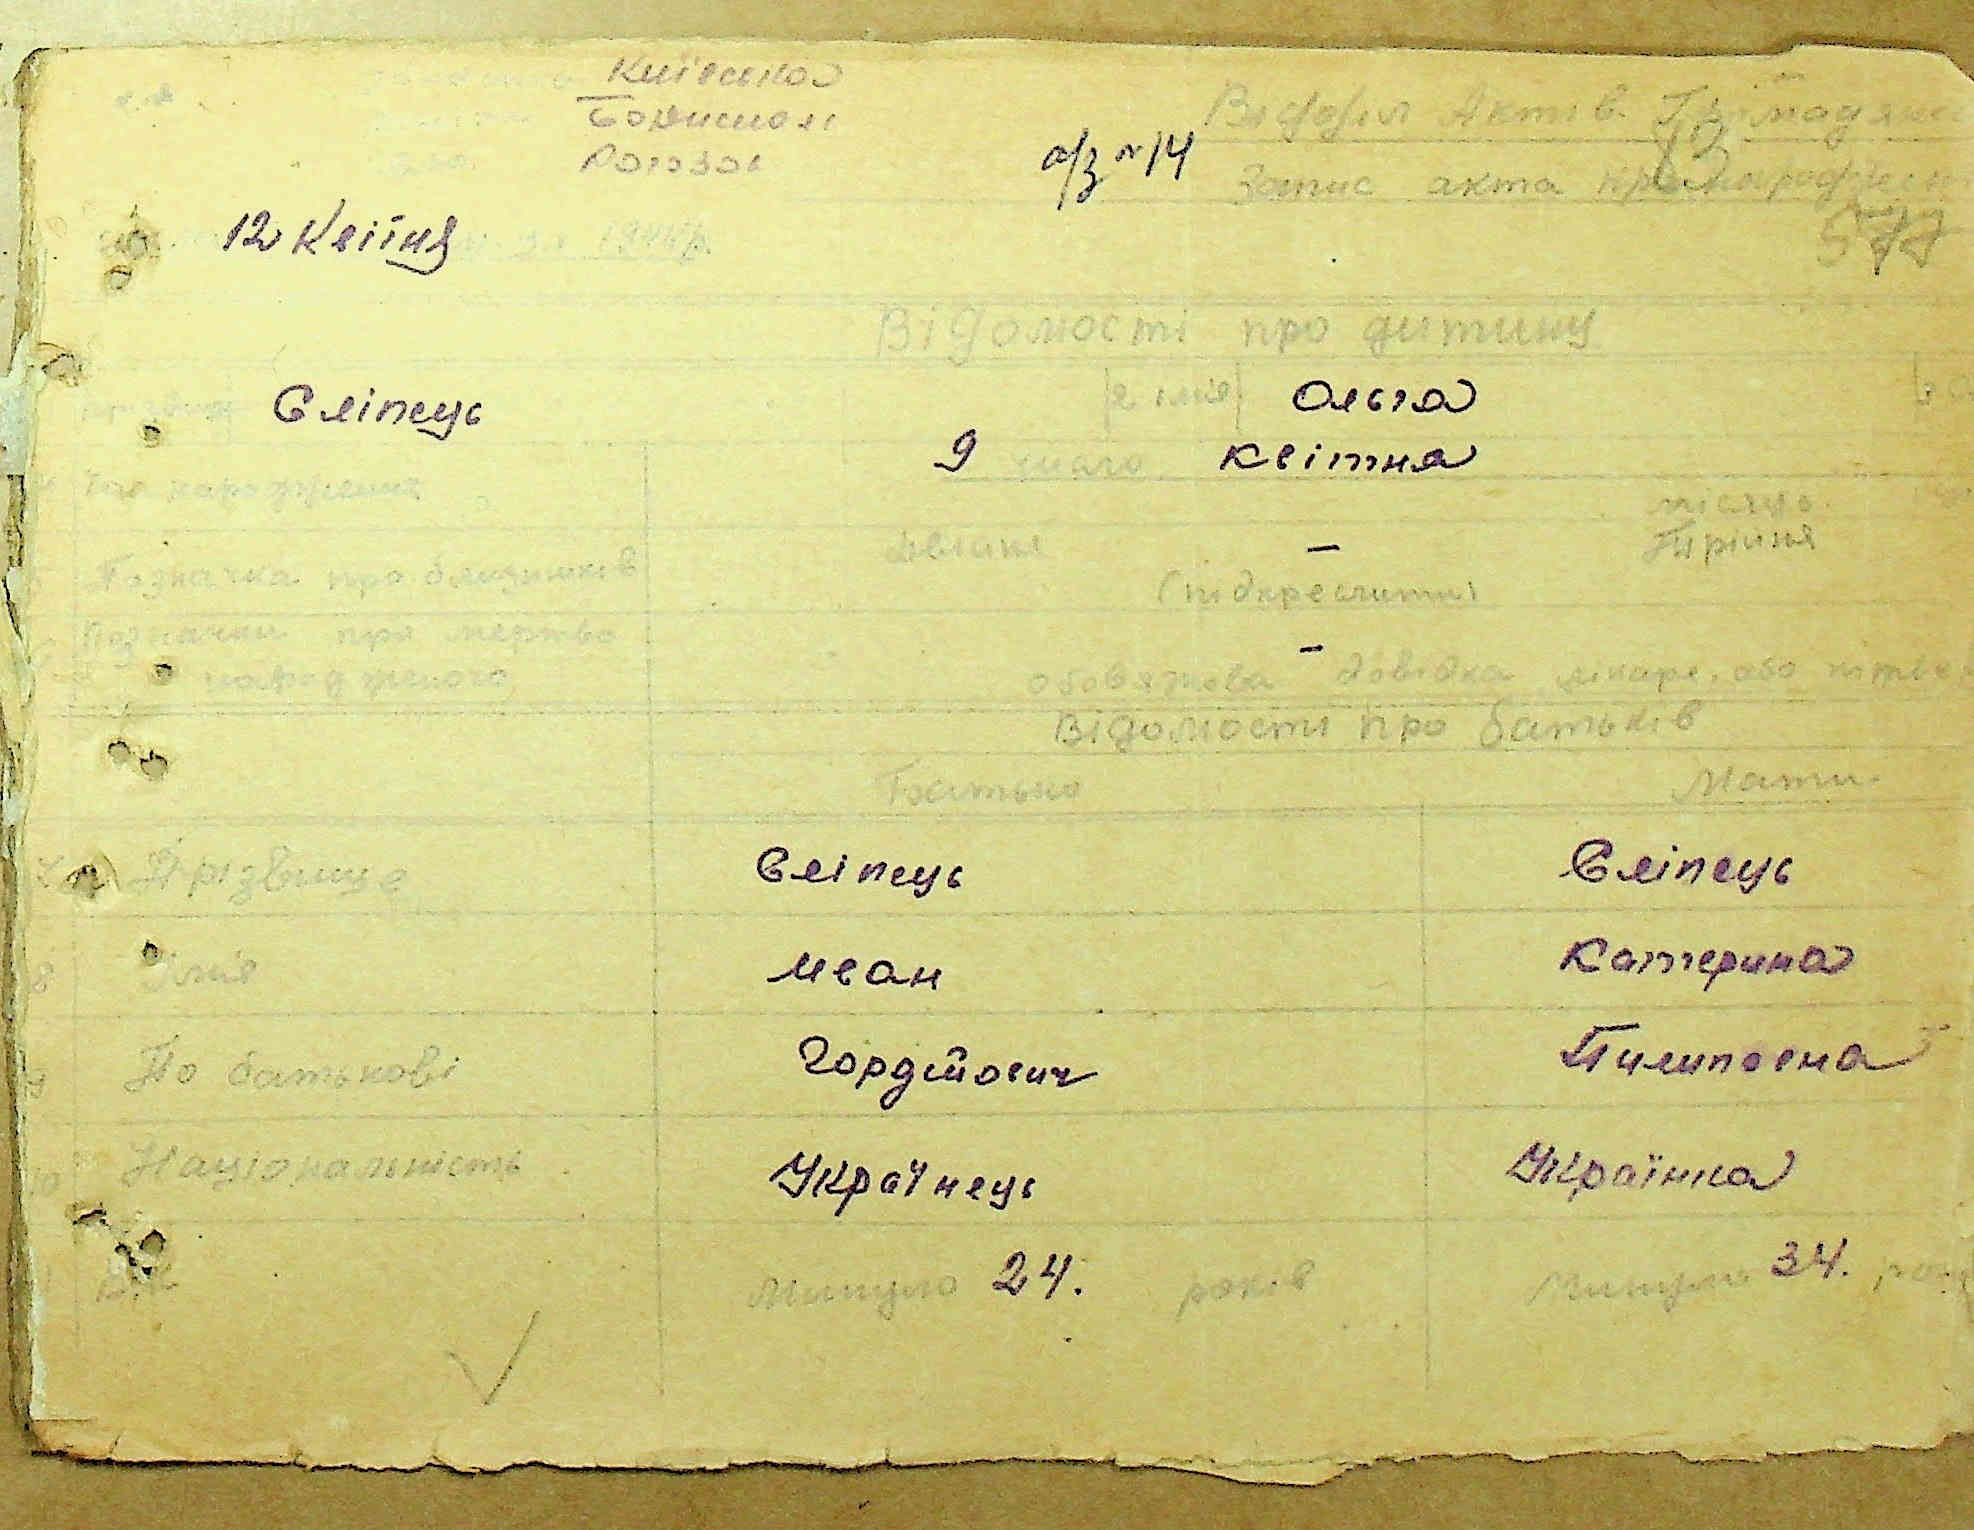 Київська
Відділ Актів Громадянс
Рогозів
а/з №14
Запис акта про народжен
12 Квітня
577
Відомості про дитину
Сліпець 2 імя Ольга
9 числа квітня
народження
місяця
Позначка про близнюків
двійні — Трійня
(підкреслити)
Позначки про мертво
народженого
—
обовязкова довідка лікаря, або
Відомости про батьків
Батько Мати
Прізвище Сліпець Сліпець
8 Імя Иван Катерина
9 По батькові Гордійович Пилиповна
10 Національність Українець Українка
Вік Минуло 24. років Минуло 34.